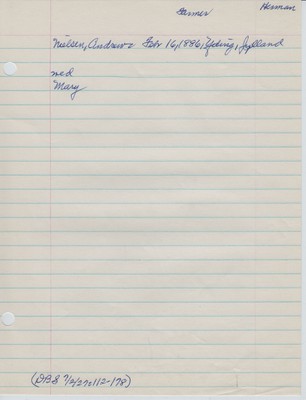 Farmer Herman
Nielsen, Andrew - Febr 16, 1886, Jylland
md
Mary
(DBS 7/2/27:112-178)